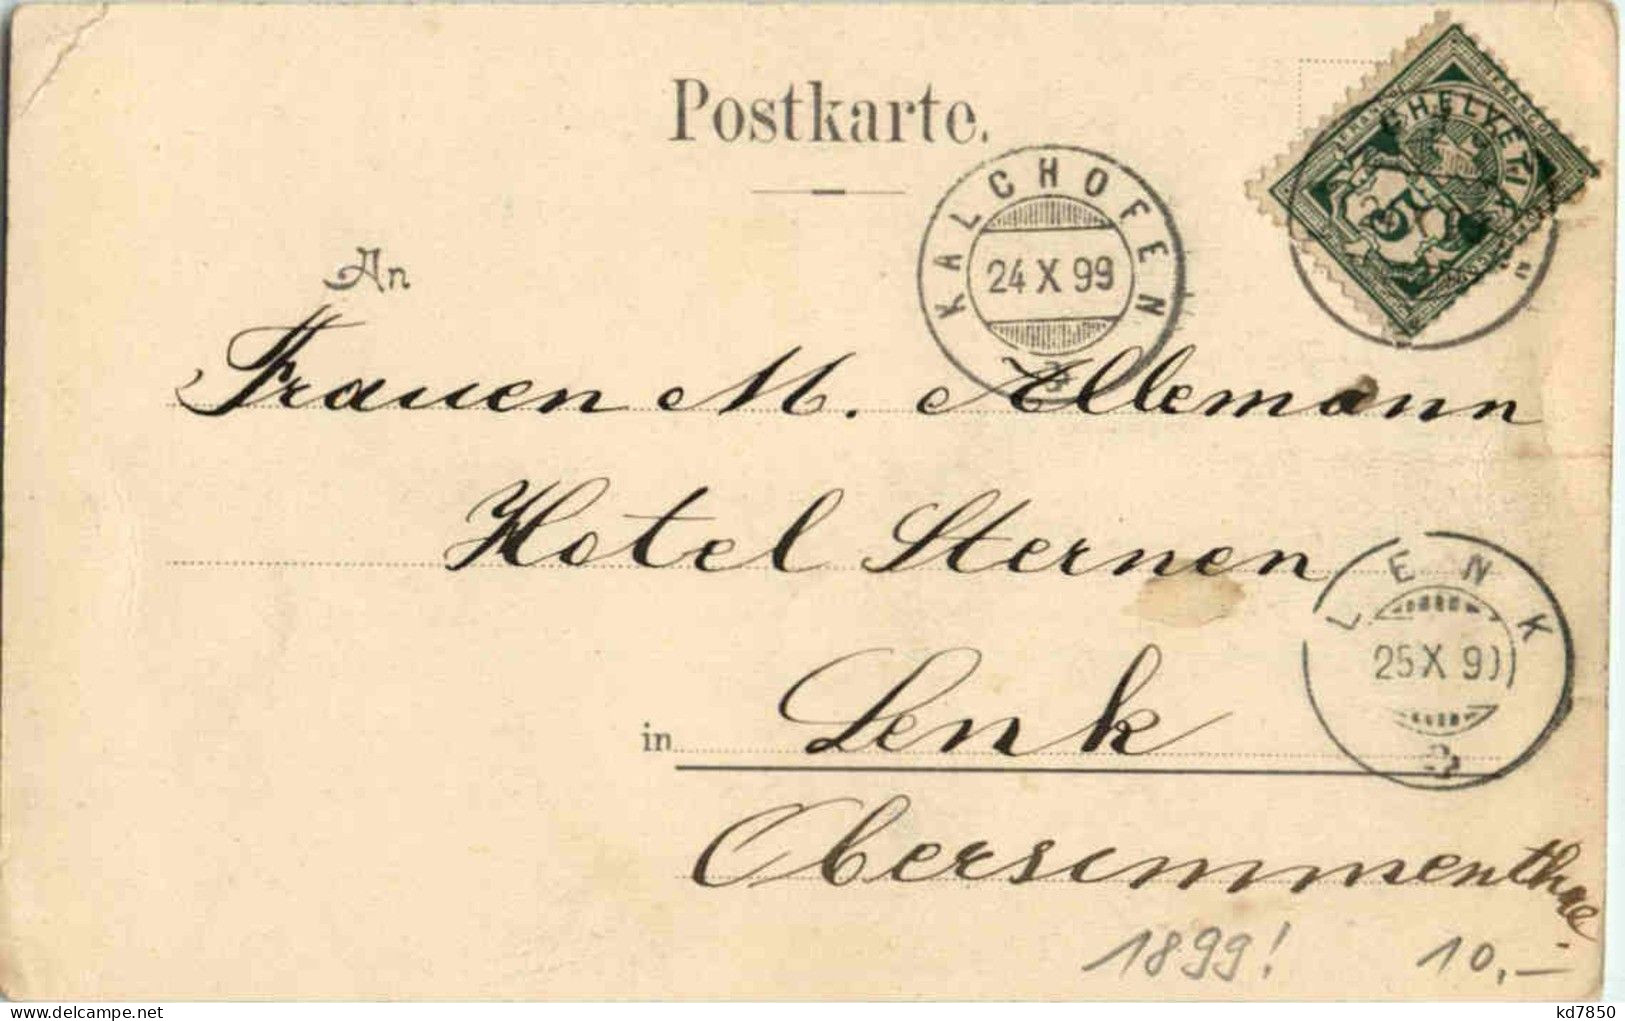 Postkarte.
HELVETIA
FRANCO
5
KALCHOFEN
24 X 99
An
Frauen M. Allemann
Hotel Sternen
LENK
25 X 9
in Lenk
Obersimmenthal.
1899! 10,-
delcampe.net
kd7850